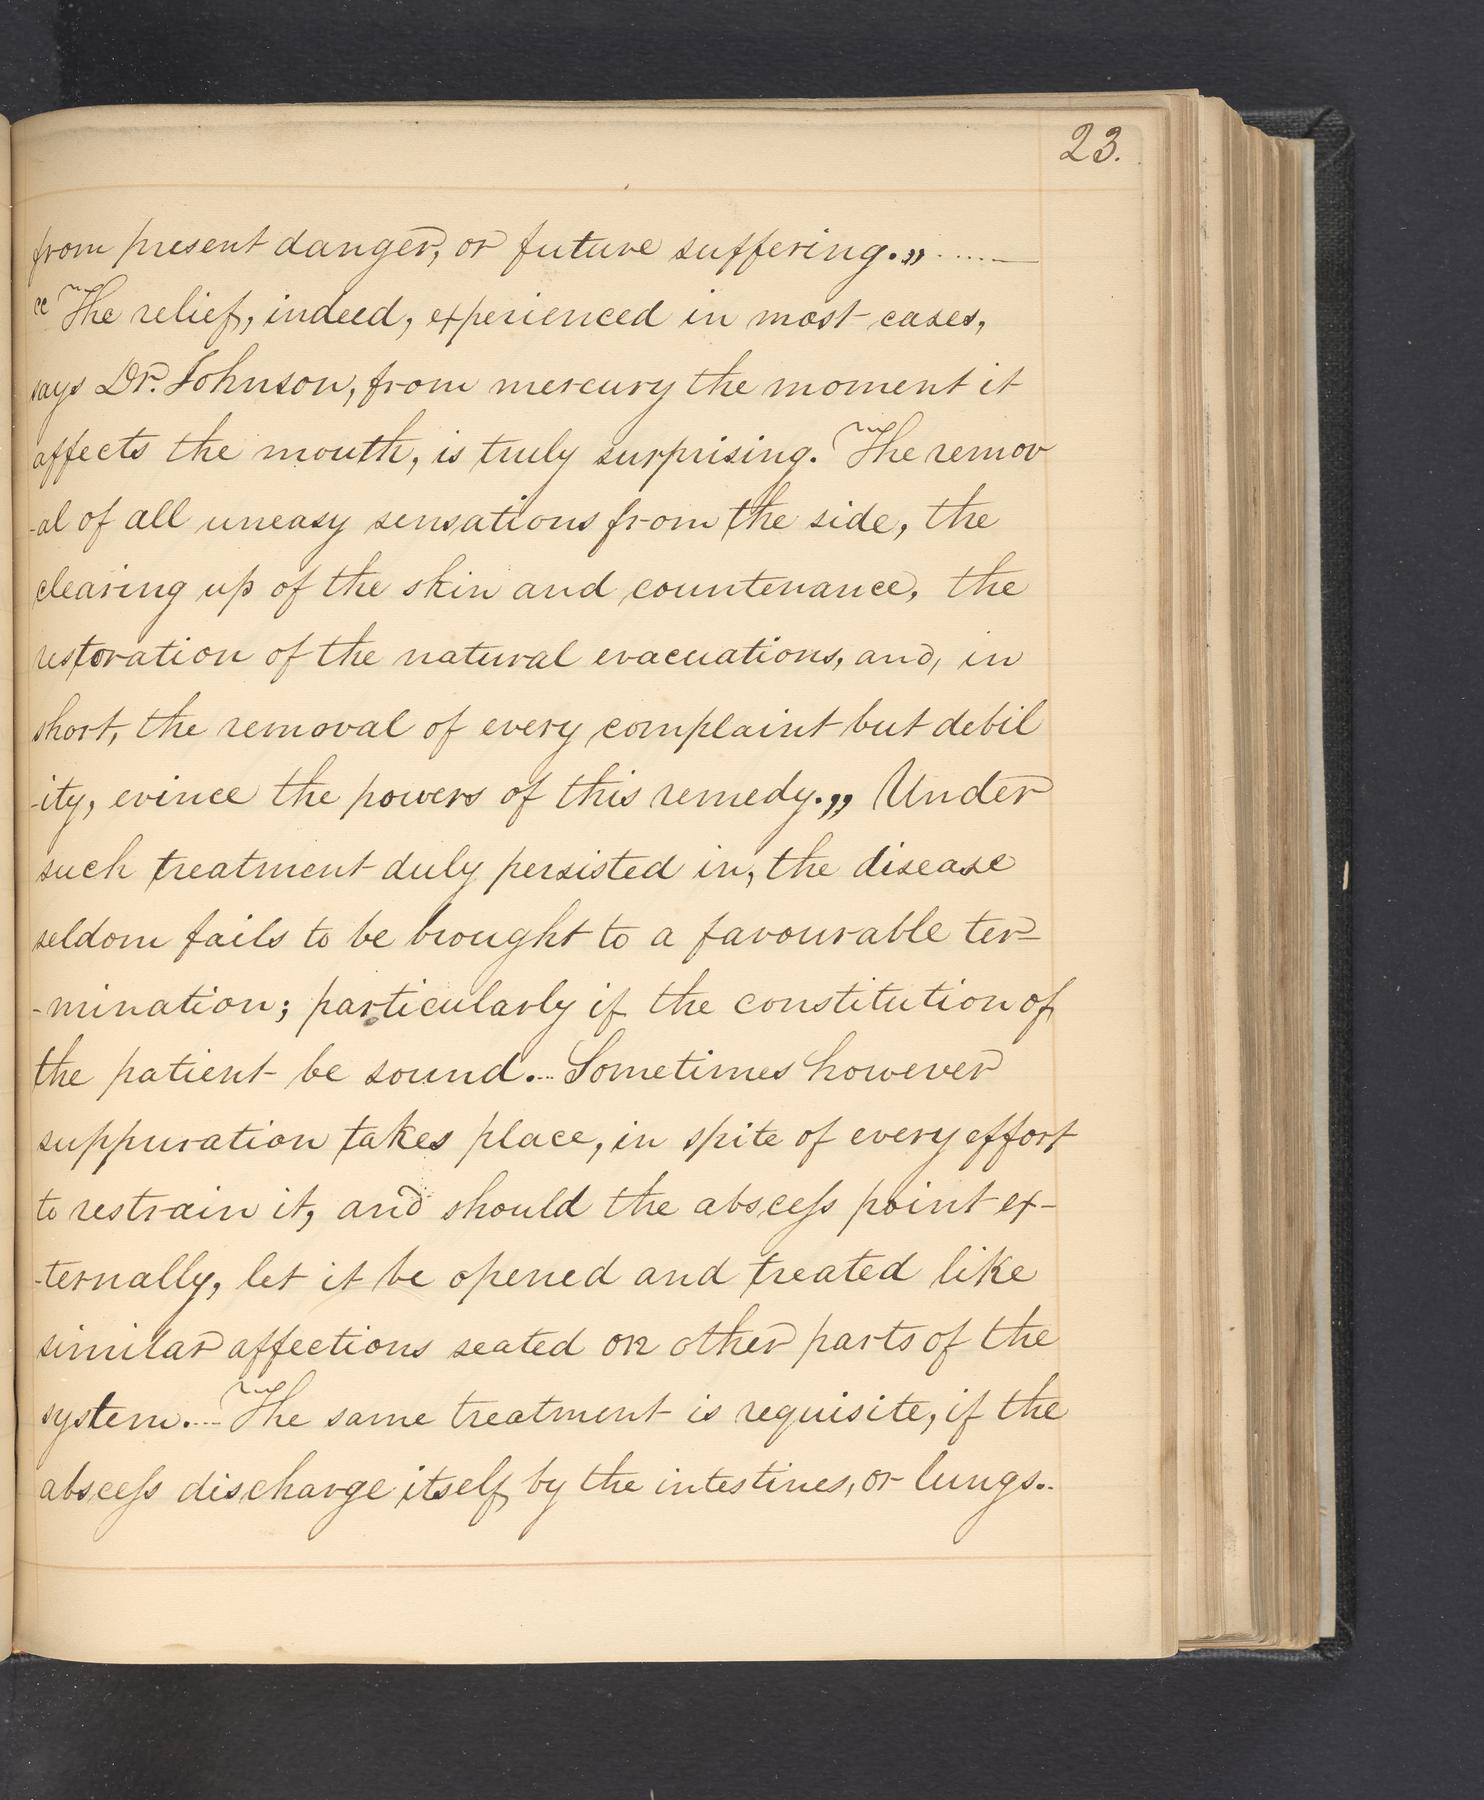 23.
from present danger, or future suffering.,, ......—
“The relief, indeed, experienced in most cases,
says Dr. Johnson, from mercury the moment it
affects the mouth, is truly surprising. The remov
-al of all uneasy sensations from the side, the
clearing up of the skin and countenance, the
restoration of the natural evacuations, and, in
short, the removal of every complaint but debil
-ity, evince the powers of this remedy.,, Under
such treatment duly persisted in, the disease
seldom fails to be brought to a favourable ter-
-mination; particularly if the constitution of
the patient be sound... Sometimes however
suppuration takes place, in spite of every effort
to restrain it, and should the abscefs point ex-
-ternally, let it be opened and treated like
similar affections seated on other parts of the
system.... The same treatment is requisite, if the
abscefs discharge itself, by the intestines, or lungs..